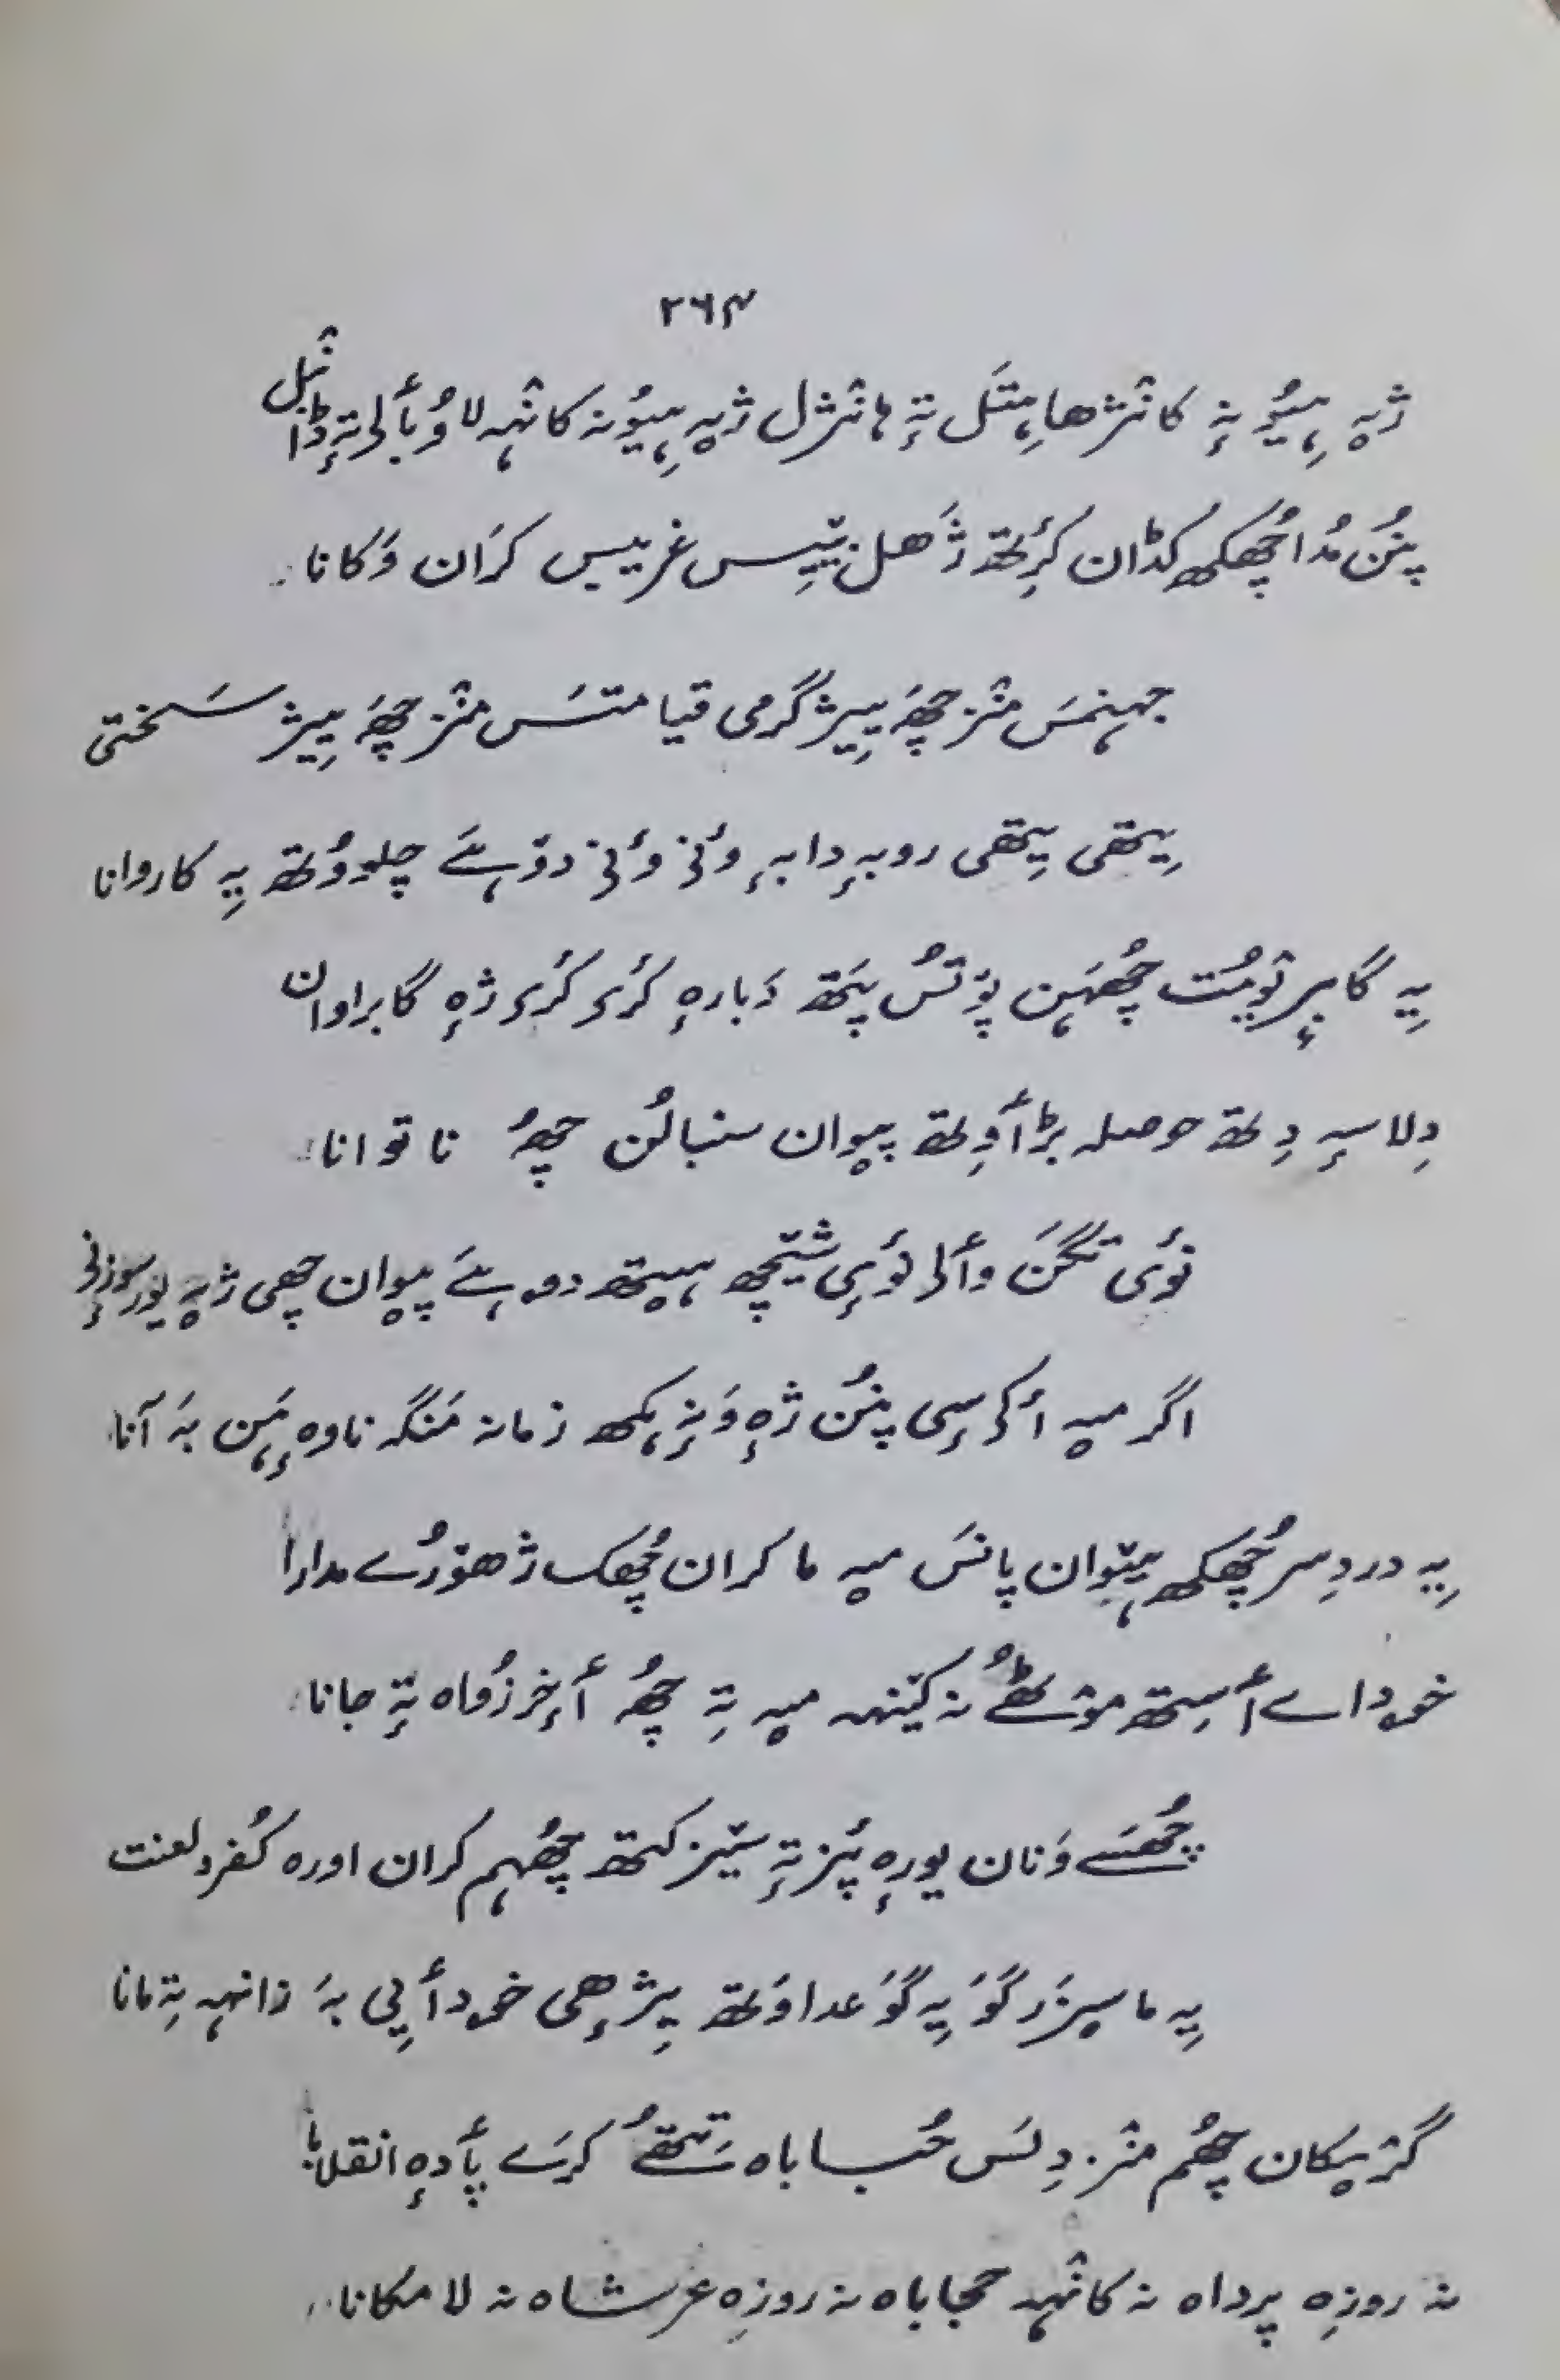 ۲۶۴
ژٕہ ہیُو نہٕ کانٛژھا ہِتَل تہٕ ہانٛژل ژٕہ ہیُو نہ کانٛہہ لاوُبألۍ تہٕ ڈانٛبل
پنُن مُدا چُھکھ کڈان کٔرتھ ژَھل نتیٖس غریبس کران وَکانا
جہنمَس منٛز چھَہ یِیژ گرمی قیامتَس منٛز چھَہ یِیژ سَختی
یِتھی یِتھی روبہٕ دابہٕ وُنۍ وُنۍ دۄہے چلووُتھ یہِ کاروانا
یہِ گاہ پرٛیومُت چُھہَن پوٚتُس پَتھ دَبارہٕ کٔرۍ کٔرۍ ژٕہ گابراوان
دِلاسہٕ دِتھ حوصلہ بڑٲوِتھ پیوان سنبالُن چھُہ ناتوانا
نوٚی تگَن وألۍ نوٚی شیٚچھ ہیٚتھ دۄہے پیوان چھی ژٕہ
اگر میہ أکۍ سٕی پنُن ژٕہ وَنہٕ ہکھ زمانہ مَنگہ ناوہٕ ہَن بہَ آنا
یہِ دردِ سر چُھکھ ہیٚوان پانسَ میہ ما کران چُھک ژھۄرُے مدارا
خوداے أسِتھ موٚٹھُے نہ کیٚنہہ میہ تہِ چھُہ أخِر زُواہ تہٕ جانا
چُھسَے وَنان یورہٕ پُز تہٕ سیٚز کتھ چُھہم کران اورہ کُفر و لعنت
یہِ ما سپزر گوَ یہِ گوَ عداوُتھ یِژھٕی خودأیی بہَ زانہہ تہِ مانا
گٔژیکان چھُم منٛز دِلَس حُباباہ سَتھُے کرَے پأدہٕ انقلابا
نہ روزِہ پرداہ نہ کانٛہہ حجاباہ نہ روزِہ عرشاہ نہ لامکانا